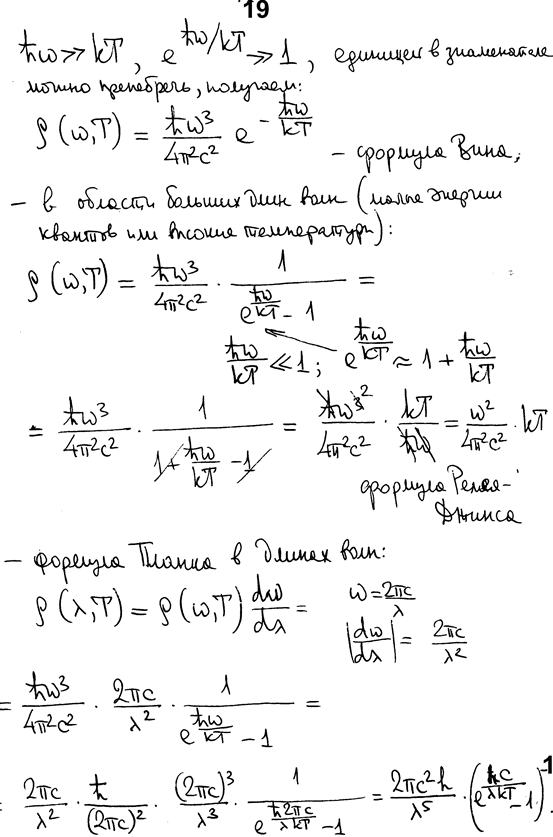 19
ħω≫kT, e^{ħω/kT}≫1, единицей в знаменателе
можно пренебречь, получаем:
ρ(ω,T) = \frac{ħω^3}{4π^2c^2} e^{-\frac{ħω}{kT}} – формула Вина;
– в области больших длин волн (малые энергии
квантов или высокие температуры):
ρ(ω,T) = \frac{ħω^3}{4π^2c^2} · \frac{1}{e^{\frac{ħω}{kT}} - 1} =
\frac{ħω}{kT} ≪ 1; e^{\frac{ħω}{kT}} ≈ 1 + \frac{ħω}{kT}
= \frac{ħω^3}{4π^2c^2} · \frac{1}{1 + \frac{ħω}{kT} - 1} = \frac{ħω^{3 2}}{4π^2c^2} · \frac{kT}{ħω} = \frac{ω^2}{4π^2c^2} · kT
формула Релея-
Джинса
– формула Планка в длинах волн:
ρ(λ,T) = ρ(ω,T) \frac{dω}{dλ} = ω = \frac{2πc}{λ}
|\frac{dω}{dλ}| = \frac{2πc}{λ^2}
= \frac{ħω^3}{4π^2c^2} · \frac{2πc}{λ^2} · \frac{1}{e^{\frac{ħω}{kT}} - 1} =
= \frac{2πc}{λ^2} · \frac{ħ}{(2πc)^2} · \frac{(2πc)^3}{λ^3} · \frac{1}{e^{\frac{ħ2πc}{λkT}} - 1} = \frac{2πc^2h}{λ^5} · (e^{\frac{hc}{λkT}} - 1)^{-1}.